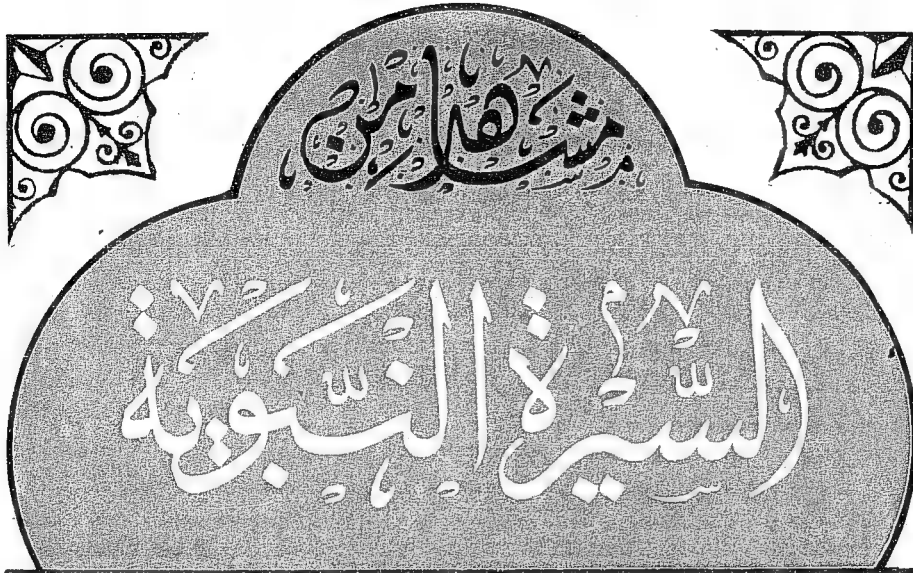 مشاهد من
السيرة النبوية